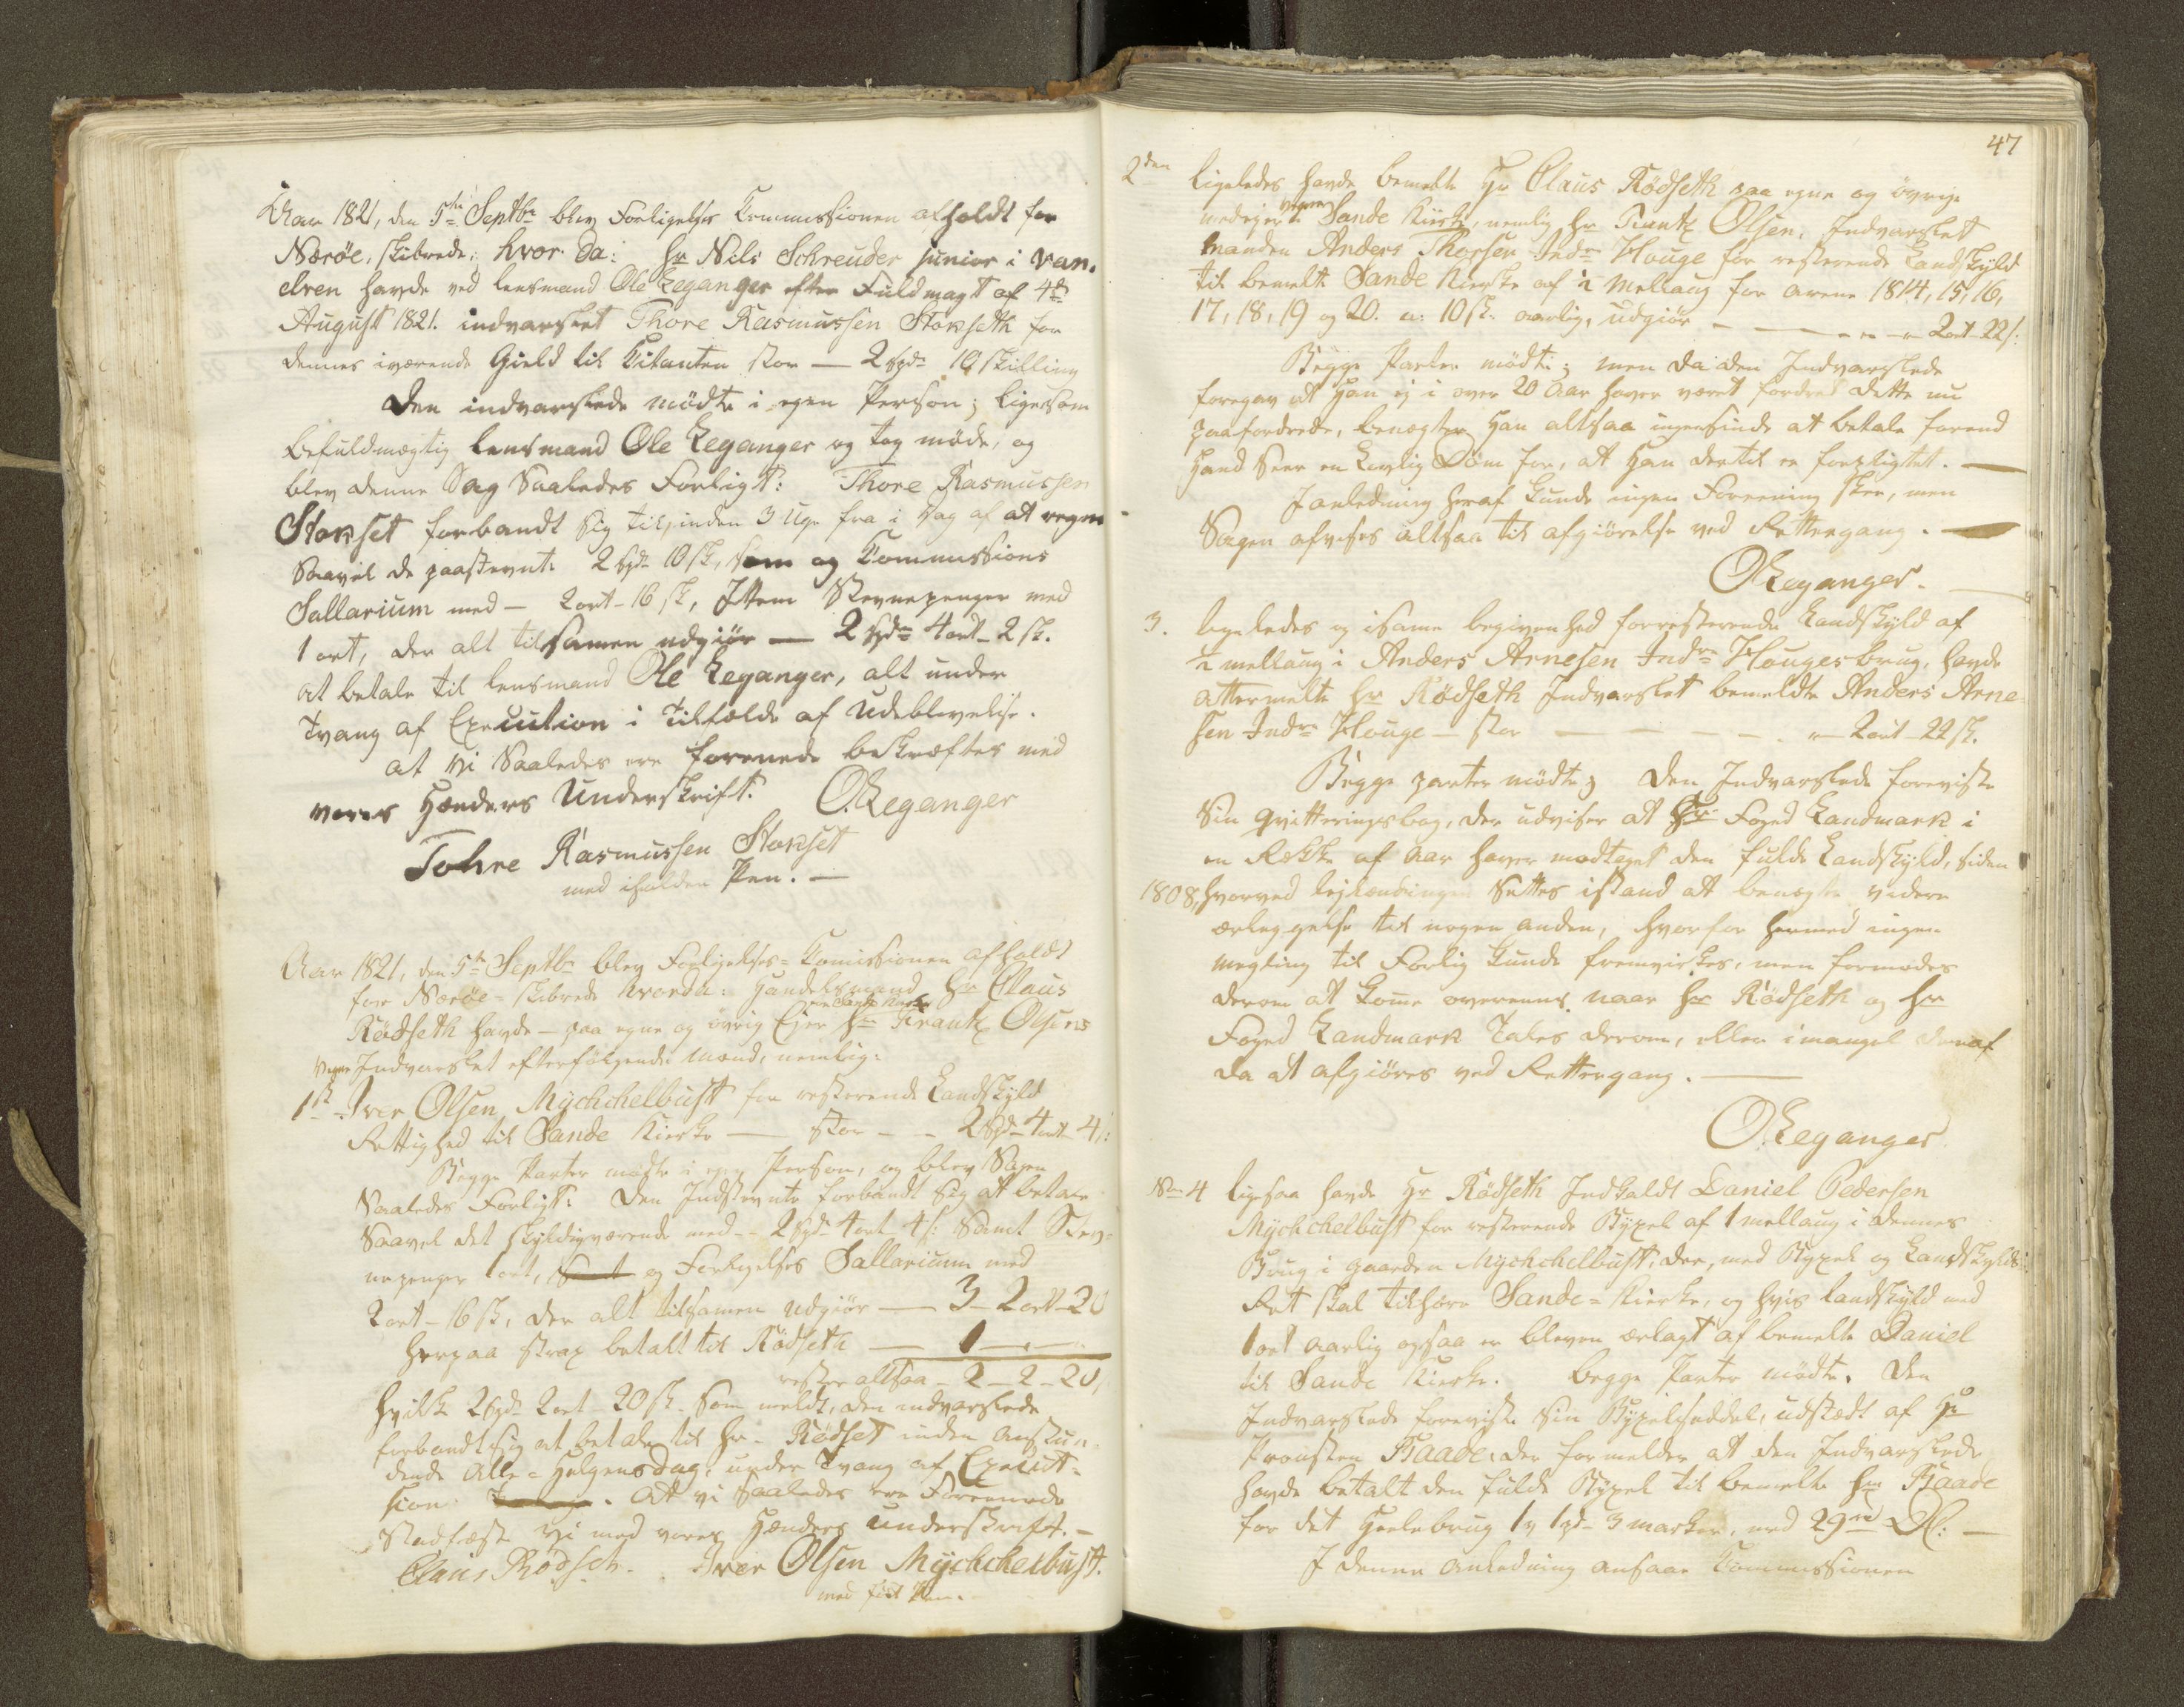 Aar 1821, den 5te Septbr blev Forligelses Commissionen afholdt for
Nærøe, skibrede; hvor da: Hr Nils Schreuder junior i Van,
elven havde ved lensmand Ole Leganger efter Fuldmagt af 4de
August 1821. indvarslet Thore Rasmussen Stokseth for
dennes iværende Gield til Citanten stor — 2 spd 10 skilling
Den indvarslede mødte i egen Person; ligesom
befuldmægtig lensmand Ole Leganger og tog møde, og
blev denne Sag Saaledes Forligt: Thore Rasmussen
Stokset forbandt sig til, inden 3 Uger fra i Dag af at regne
Saavel de paastevnte 2 spd 10 sk, som og Commissions
Sallarium med — 2 ort - 16 sk, Ittem Stevnepenger med
1 ort, der alt tilsamen udgiør — 2 spd 4 ort - 2 sk.
at betale til lensmand Ole Leganger, alt under
Tvang af Execution i Tilfælde af Udeblivelse.
at vi Saaledes ere forenede bekræftes med
vores Hænders Underskrift. O. Leganger
Tohre Rasmussen Stokset
med iholden Pen. —
Aar 1821, den 5te Septbr blev Forligelses = Comissionen afholdt
for Nærøe = skibrede hvorda: Handelsmand Hr Claus
Rødseth havde — paa egne og øvrig Ejer af Sande Kirke Hr Frantz Olsens
vegne Indvarslet efterfølgende Mænd, nemlig:
1st Iver Olsen Mychchelbust for resterende Landskyld
Rettighed til Sande Kierke — stor - - 2 spd 4 ort 4 s:
Begge Parter mødte i egen Person, og blev Sagen
Saaledes Forligt: Den Indstevnte forbandt sig at betale
Saavel det skyldigværende med - - 2 spd 4 ort 4 s: Samt Stev=
nepenger 1 ort, og Forligelses Sallarium med
2 ort - 16 sk, der alt tilsamen udgiør — 3 - 2 ort - 20
herpaa strax betalt til Rødseth — 1 — —
rester altsaa - 2 - 2 - 20,
hvilke 2 spd 2 ort - 20 sk. Som meldt, den indvarslede
forbandt sig at betale til Hr. Rødset inden anstun=
dende Alle = Helgensdag, under Tvang af Execut=
sion. At vi Saaledes ere Foreenede
Stadfæste vi med vores Hænders underskrift. —
Claus Rødseth. Iver Olsen Mychchelbust.
med ført Pen.
47
2den ligeledes havde bemelte Hr Claus Rødseth paa egne og øvrige
medejere vegne Sande Kirke, nemlig Hr Frantz Olsen, Indvarslet
Manden Anders Thorsen Indre Houge for resterende Landskyld
til bemelte Sande Kierke af 1/2 Mellaug for Aarene 1814, 15, 16,
17, 18, 19 og 20. a: 10 sk. aarlig, udgiør - — - - - 2 ort 22 s:
Begge Parter mødte; men da den Indvarslede
foregav at Han ej i over 20 Aar haver været fordret dette nu
paafordrede, benægter Han altsaa ingensinde at betale forend
Hand Seer en Lovlig Dom for, at Han dertil er forpligtet. —
I anledning heraf kunde ingen Foreening skee, men
Sagen afvises altsaa til afgiørelse ved Rettergang. —
O Leganger.
3. ligeledes og isame begivenhed forresterende Landskyld af
1/2 mellaug i Anders Arnesen Indre Houges brug, havde
attermelte Hr Rødseth Indvarslet bemeldte Anders Arne
sen Indre Houge — stor — — — — - 2 ort - 22 sk.
Begge parter mødte; Den Indvarslede foreviste
Sin Qvitteringsbog, der udviser at Hr Foged Landmark i
en Række af Aar haver modtaget den fulde Landskyld, siden
1808, hvorved Leylændingen Settes istand at benægte videre
erleggelse til nogen anden, hvorfor hermed ingen
megling til Forlig kunde fremvirkes, men formodes
derom at kome overeens, naar Hr Rødseth og Hr
Foged Landmark Tales derom, eller imangel deraf
da at afgiøres ved Rettergang. —
O. Leganger
No 4 ligesaa havde Hr Rødseth Indkaldt Daniel Pedersen
Mychchelbust for resterende Bygsel af 1 mellaug i dennes
Brug i gaarden Mychchelbust, der, med Bygsel og Landskylds
Ret skal tilhøre Sande = Kierke, og hvis landskyld med
1 ort Aarlig ogsaa er bleven erlagt af bemelte Daniel
til Sande Kierke. begge Parter mødte. Den
Indvarslede foreviste Sin Bygselseddel, udstædt af Hr
Provsten Raade, der formelder at den Indvarslede
havde betalt den fulde Bygsel til bemelte Hr Raade
for det Heelebrug 1 v 1 pd 3 marker, med 29 rd —
I denne Anledning ansaae Commissionen